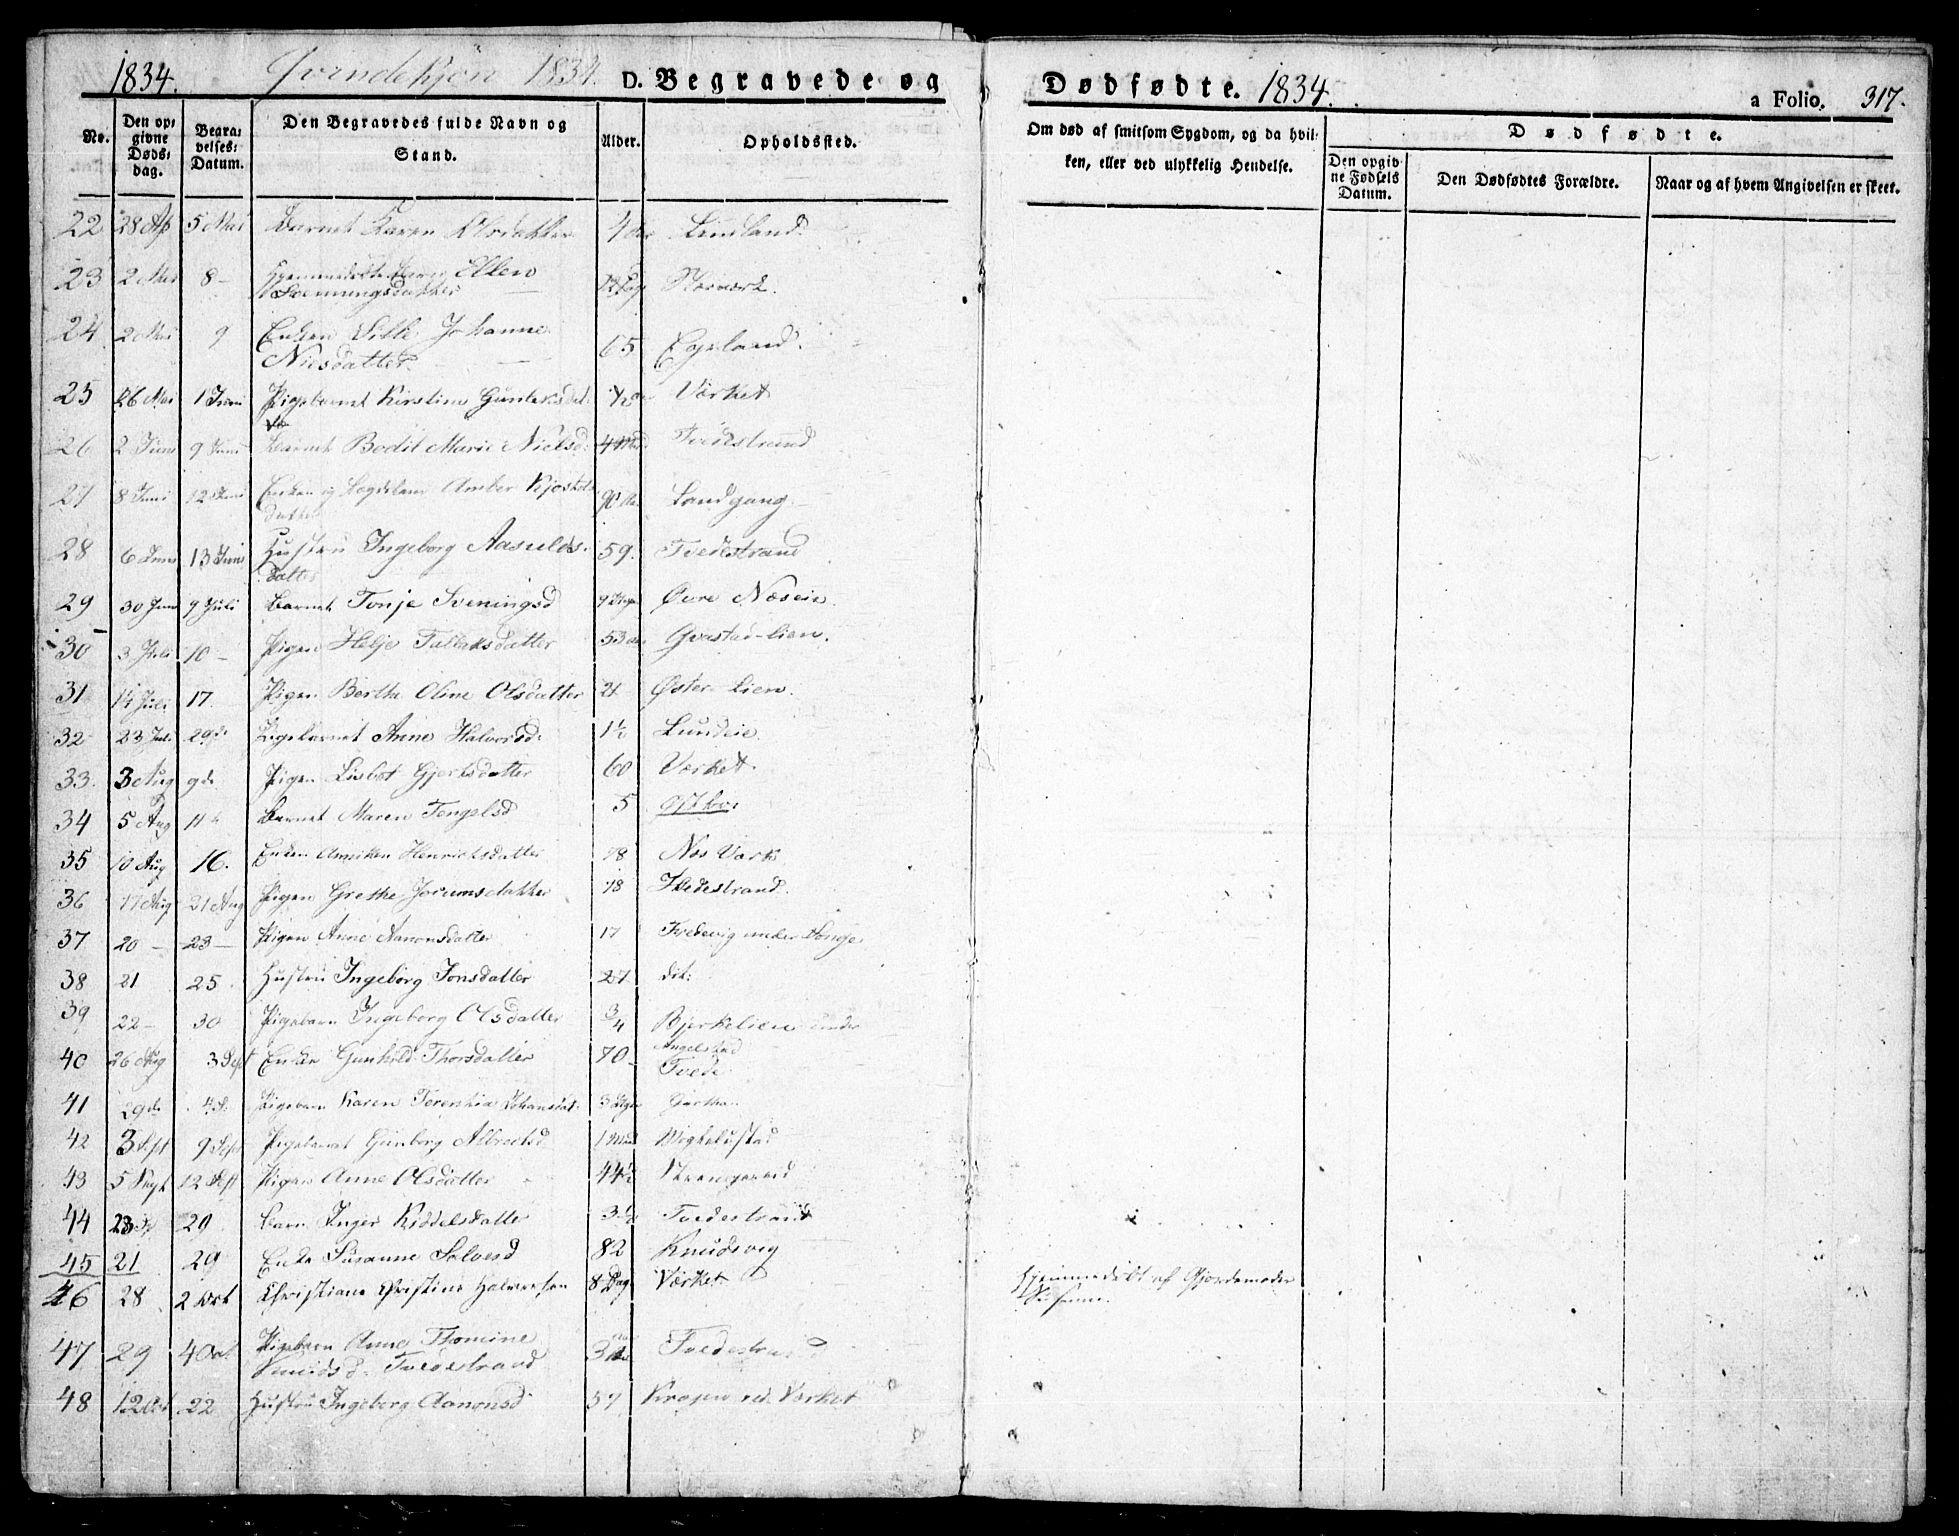 1834. Qvindekjøn 1834. D. Begravede og Dødfødte. 1834. a Folio. 317.
No. Den opgivne Dødsdag. Begravelses Datum. Den Begravedes fulde Navn og Stand. Alder. Opholdssted. Om død af smitsom Sygdom, og da hvilken, eller ved ulykkelig Hendelse. Dødfødte.
Den opgivne Fødsels Datum. Den Dødfødtes Forældre. Naar og af hvem Angivelsen er skeet.
22 28 Ap 5 Mai Barnet Karen Olsdatter 4
23 2 Mai 8 – Hjemmedøbte Barn Ellen
Svenningsdatter 12 Dage
24 2 Mai 9 Enken Johanne
Nielsdatter 65 Egeland.
25 26 Mai 1 Juni Pigebarnet Kirstine Værket
26 2 Juni 9 Juni Barnet Bodil Marie Nielsd: 4 Tvedestrand
27 8 Juni 12 Juni Enken og Lægdslem 90 Landgang
28 6 Juni 13 Juni Hustru Ingeborg Aasulds-
datter 59. Tvedestrand
29 30 Juni 9 Juli Barnet Tonje Sveningsd 9 Øvre Næsein.
30 3 Juli 10 – Pigen Helje Tallaksdatter 53 Gvestad-lien.
31 14 Juli 17. Pigen Berthe Oline Olsdatter 21 Øster Lien.
32 23 Juli 29d Pigebarnet Anne Halvorsd: 1½ Lundeie
33. 3 Aug 9d Pigen Lisbet Gjertsdatter 60 Værket.
34 5 Aug 11 Barnet Maren Tengelsd 5
35 10 Aug 16. Enken Anniken Henrichsdatter 78 Nes Værk
36 17 Aug 21 Aug Pigen Grethe Jorumsdatter 18 Tvedestrand.
37 20 – 23 – Pigen Anne Aanonsdatter 17 Tvedevig under Songe.
38 21 25. Hustru Ingeborg Jonsdatter 27 dit:
39 22 – 30 Pigebarn Ingeborg Olsdatter 3/4 Bjerkelien under
Angelstad
40 26 Aug 3 Sept Enken Gunhild Thorsdatter 70 – Tvede
41 29d 4 S. Pigebarn Karen Terentia Johansdat: 3
42 3 Sept 9 Sept Pigebarnet Gunborg Albretsd 1
43 5 Sept 12 Sept Pigen Anne Olsdatter 44½
44 23 S. 29 Barn Inger Kiddelsdatter 3½ Tvedestrand
45 21 29 Enke Susanne Salvesd 82 Knudsvig
46 28 2 Oct Christiane Christine Halvorsen 8 Dag Værket Hjemmedøbt af Gjordemoder
47 29 4 Oct. Pigebarn Anne Thomine
Knudsd. Tvedestrand 3 Tvedestrand
48 12 Oct 22 Hustru Ingeborg Aanonsd 57 ved Værket